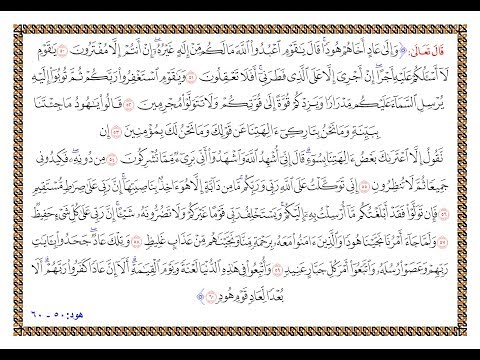 قال تعالى: ﴿ وَإِلَىٰ عَادٍ أَخَاهُمْ هُودًا ۚ قَالَ يَٰقَوْمِ ٱعْبُدُوا۟ ٱللَّهَ مَا لَكُم مِّنْ إِلَٰهٍ غَيْرُهُۥٓ ۖ إِنْ أَنتُمْ إِلَّا مُفْتَرُونَ ٥٠ يَٰقَوْمِ
لَآ أَسْـَٔلُكُمْ عَلَيْهِ أَجْرًا ۖ إِنْ أَجْرِىَ إِلَّا عَلَى ٱلَّذِى فَطَرَنِىٓ ۚ أَفَلَا تَعْقِلُونَ ٥١ وَيَٰقَوْمِ ٱسْتَغْفِرُوا۟ رَبَّكُمْ ثُمَّ تُوبُوٓا۟ إِلَيْهِ
يُرْسِلِ ٱلسَّمَآءَ عَلَيْكُم مِّدْرَارًا وَيَزِدْكُمْ قُوَّةً إِلَىٰ قُوَّتِكُمْ وَلَا تَتَوَلَّوْا۟ مُجْرِمِينَ ٥٢ قَالُوا۟ يَٰهُودُ مَا جِئْتَنَا
بِبَيِّنَةٍ وَمَا نَحْنُ بِتَارِكِىٓ ءَالِهَتِنَا عَن قَوْلِكَ وَمَا نَحْنُ لَكَ بِمُؤْمِنِينَ ٥٣ إِن
نَّقُولُ إِلَّا ٱعْتَرَىٰكَ بَعْضُ ءَالِهَتِنَا بِسُوٓءٍ ۗ قَالَ إِنِّىٓ أُشْهِدُ ٱللَّهَ وَٱشْهَدُوٓا۟ أَنِّى بَرِىٓءٌ مِّمَّا تُشْرِكُونَ ٥٤ مِن دُونِهِۦ ۖ فَكِيدُونِى
جَمِيعًا ثُمَّ لَا تُنظِرُونِ ٥٥ إِنِّى تَوَكَّلْتُ عَلَى ٱللَّهِ رَبِّى وَرَبِّكُم ۚ مَّا مِن دَآبَّةٍ إِلَّا هُوَ ءَاخِذٌۢ بِنَاصِيَتِهَآ ۚ إِنَّ رَبِّى عَلَىٰ صِرَٰطٍ مُّسْتَقِيمٍ
٥٦ فَإِن تَوَلَّوْا۟ فَقَدْ أَبْلَغْتُكُم مَّآ أُرْسِلْتُ بِهِۦٓ إِلَيْكُمْ ۚ وَيَسْتَخْلِفُ رَبِّى قَوْمًا غَيْرَكُمْ وَلَا تَضُرُّونَهُۥ شَيْـًٔا ۚ إِنَّ رَبِّى عَلَىٰ كُلِّ شَىْءٍ حَفِيظٌ
٥٧ وَلَمَّا جَآءَ أَمْرُنَا نَجَّيْنَا هُودًا وَٱلَّذِينَ ءَامَنُوا۟ مَعَهُۥ بِرَحْمَةٍ مِّنَّا وَنَجَّيْنَٰهُم مِّنْ عَذَابٍ غَلِيظٍ ٥٨ وَتِلْكَ عَادٌ ۖ جَحَدُوا۟ بِـَٔايَٰتِ
رَبِّهِمْ وَعَصَوْا۟ رُسُلَهُۥ وَٱتَّبَعُوٓا۟ أَمْرَ كُلِّ جَبَّارٍ عَنِيدٍ ٥٩ وَأُتْبِعُوا۟ فِى هَٰذِهِ ٱلدُّنْيَا لَعْنَةً وَيَوْمَ ٱلْقِيَٰمَةِ ۗ أَلَآ إِنَّ عَادًا كَفَرُوا۟ رَبَّهُمْ ۗ أَلَا
بُعْدًا لِّعَادٍ قَوْمِ هُودٍ ٦٠ ﴾
هود: ٥٠ - ٦٠